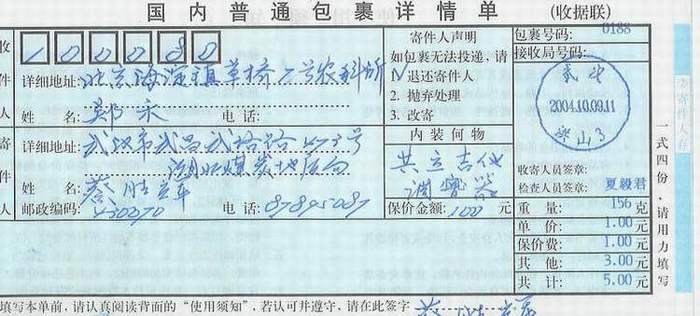 国内普通包裹详情单 (收据联)
收 100080
件 详细地址: 北京海淀镇草桥2号农科所
人 姓名: 郑禾 电话:
寄 详细地址: 武汉市武昌武珞路473号
湖北煤炭地质局
件 姓名: 蔡胜
人 邮政编码: 430070 电话: 87895087
寄件人声明
如包裹无法投递,请
√1. 退还寄件人
2. 抛弃处理
3. 改寄
内装何物
共立吉他
调音器
保价金额: 100 元
包裹号码: 0188
接收局号码:
武汉
2004.10.09.11
洪山3
收寄人员签章:
检查人员签章: 夏毅君
重量: 156 克
单价: 1.00 元
保价费: 1.00 元
其他: 3.00 元
共计: 5.00 元
寄件人存
一式四份,请用力填写
填写本单前,请认真阅读背面的“使用须知”,若认可并遵守,请在此签字